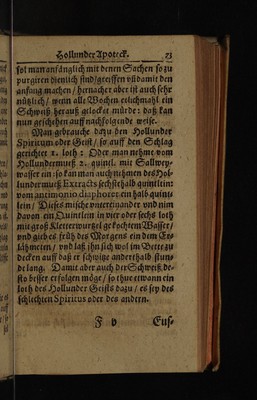 Hollunder Apoteck. 73
sol man anfänglich mit denen Sachen so zu
purgiren dienlich sind/greiffen vñ damit den
anfang machen/ hernacher aber ist auch sehr
nützlich/ wenn alle Wochen etlichmahl ein
Schweiß herauß gelocket würde: daß kan
nun geschehen auff nachfolgende weise.
Man gebrauche dazu den Hollunder
Spiritum oder Geist/ so auff den Schlag
gerichtet 1. loth: Oder man nehme vom
Hollundermueß 2. quintl. mit
wasser ein: so kan man auch nehmen des Hol-
lundermueß Extracts sechstehalb quintlein
vom antimonio diaphoret. ein halb quint-
lein/ Dieses mische untereinander und nim
davon ein Quintlein in vier oder sechs loth
mit groß Klettenwurtzel gekochtem Wasser/
und gieb es früh des Morgens ein dem Er-
lähmeten/ und laß ihn sich wol im Bette zu
decken auff daß er schwitze anderthalb stun-
de lang. Damit aber auch der Schweiß de-
sto besser erfolgen möge/ so thue etwann ein
loth des Hollunder Geists dazu/ es sey des
schlechten Spiritus oder des andern.
F v Eus-